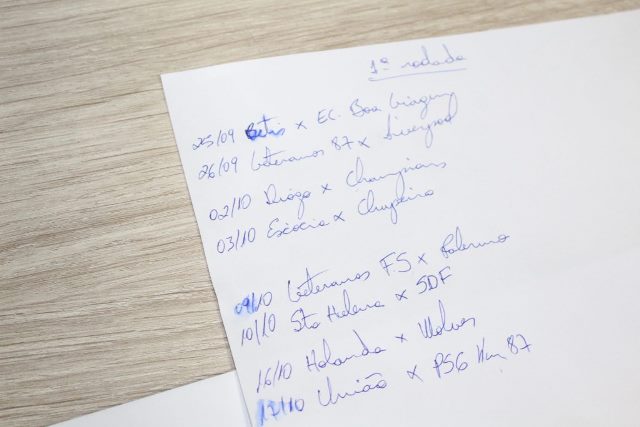 1ª rodada
25/09 Betis x EC. Boa Viagem
26/09 Veteranos 87 x Liverpool
02/10 Diogo x Champions
03/10 Escócia x Chupeira
09/10 Veteranos F.S x Palermo
10/10 Sta Helena x SDF
16/10 Holanda x Wolves
17/10 União x PSG Km 87